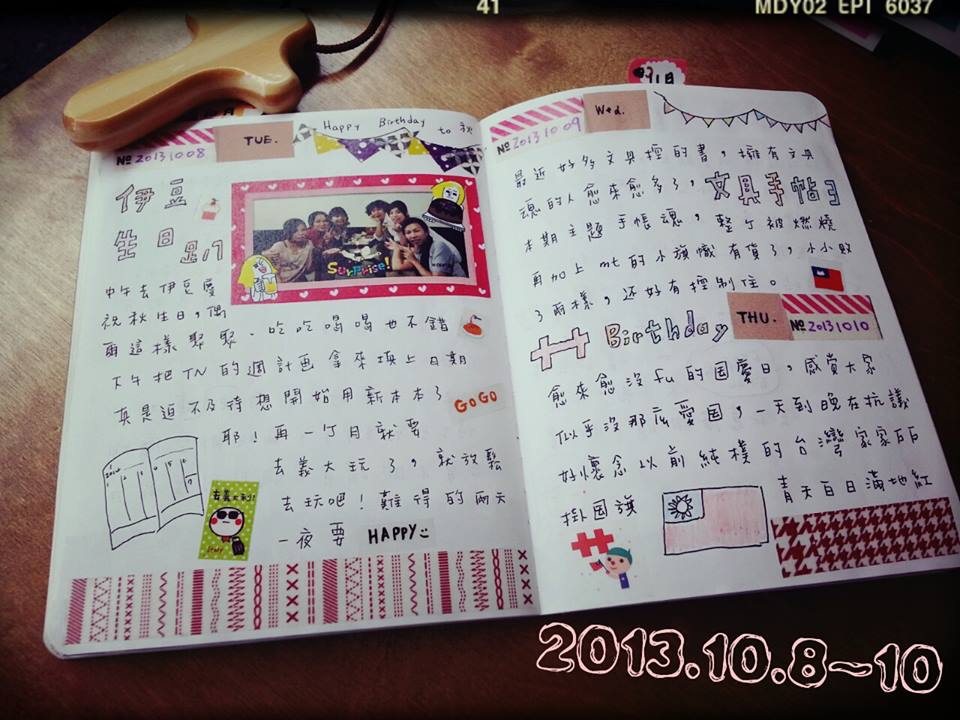 41
MDY02 EPI 6037
TUE.
Happy Birthday to 秋
№ 20131008
伊豆
生日趴
Surprise!
中午去伊豆慶
祝秋生日,偶
爾這樣聚聚、吃吃喝喝也不錯
下午把TN的週計画拿來填上日期
真是迫不及待想開始用新本本了
GOGO
耶!再一个月就要
去義大玩了,就放鬆
去玩吧!難得的兩天
一夜要 HAPPY
去義大利!
31日
№ 20131009
Wed.
最近好多文具控的書,擁有文具
魂的人愈來愈多了,文具手帖3
本期主題手帳魂,整个被燃燒
再加上 mt的小旗幟有貨了,小小敗
了兩樣,还好有控制住。
THU.
№ 20131010
十十 Birthday
愈來愈沒fu的囯慶日,感覚大家
似乎沒那庅愛囯,一天到晚在抗議
好懷念以前純樸的台灣家家戶戶
掛囯旗
青天百日滿地紅
2013.10.8~10